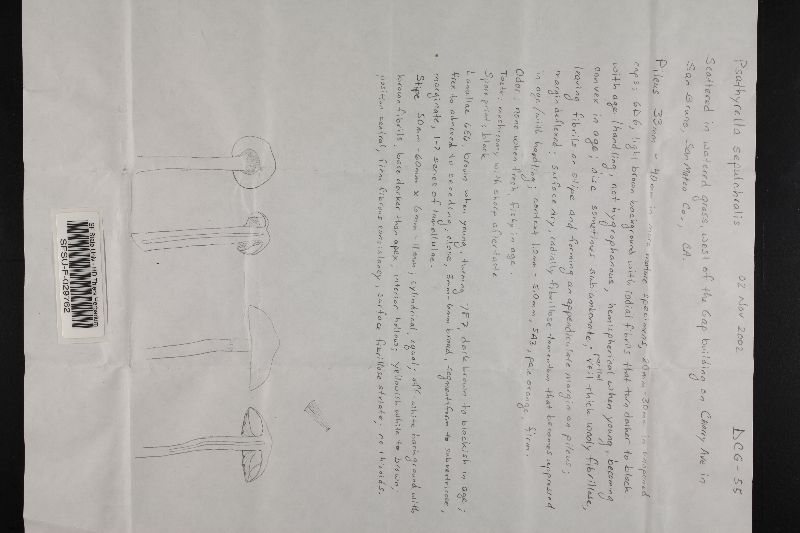 Psathyrella sepulchralis 02 Nov 2002 DCG-55
Scattered in watered grass, west of the Gap building on Cherry Ave in
San Bruno, San Mateo Co., CA.
Pileus 33mm - 40mm in more mature specimens, 20mm-30mm in unopened
caps; 6D6, light brown background with radial fibrils that turn darker to black
with age/handling, not hygrophanous, hemispherical when young, becoming
convex in age; disc sometimes subumbonate; partial veil thick wooly fibrillose,
leaving fibrils on stipe and forming an appendiculate margin on pileus;
margin deflexed; surface dry, radially fibrillose tomentum that becomes appressed
in age/with handling; context 1.0mm - 5.0mm, 5A3, pale orange, firm.
Odor: none when fresh, fishy in age.
Taste: mushroomy with sharp aftertaste
Spore print: black
Lamellae 6E6, brown when young, turning 7F7, dark brown to blackish in age;
free to adnexed to seceding, close, 3mm-6mm broad, segmentiform to subventricose,
marginate, 1-7 series of lamellulae.
Stipe 50mm-60mm x 6mm-11mm; cylindrical, equal; off-white background with
brown fibrils, base darker than apex; interior hollow; yellowish white to brown,
position central, firm fibrous consistency, surface fibrillose striate. no rhizoids.
SFSU-F-029762